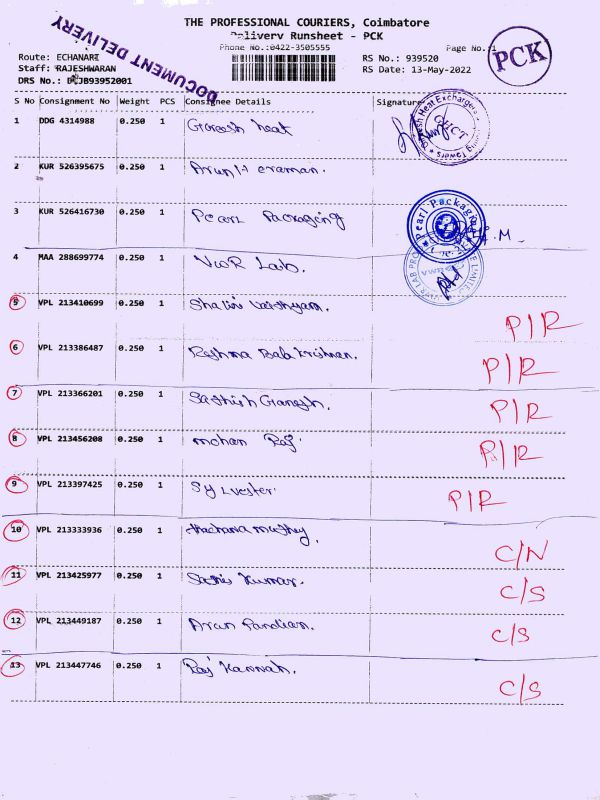 THE PROFESSIONAL COURIERS, Coimbatore
Delivery Runsheet - PCK
Phone No.:0422-3505555
Page No.:1
PCK
DOCUMENT DELIVERY
Route: ECHANARI
Staff: RAJESHWARAN
RS No.: 939520
RS Date: 13-May-2022
S No Consignment No Weight PCS Consignee Details Signature
1 DDG 4314988 0.250 1 Ganesh heat
2 KUR 526395675 0.250 1
3 KUR 526416730 0.250 1 Pearl Packaging
4 MAA 288699774 0.250 1 VWR Lab.
5 VPL 213410699 0.250 1 Shalini P/R
6 VPL 213386487 0.250 1 Reshma Bala Krishnan. P/R
7 VPL 213366201 0.250 1 Sathish Ganesh. P/R
8 VPL 213456208 0.250 1 mohan Raj P/R
9 VPL 213397425 0.250 1 Sylvester P/R
10 VPL 213333936 0.250 1 C/N
11 VPL 213425977 0.250 1 Kumar. C/S
12 VPL 213449187 0.250 1 Arun Pandian. C/S
13 VPL 213447746 0.250 1 Raj Kannah. C/S